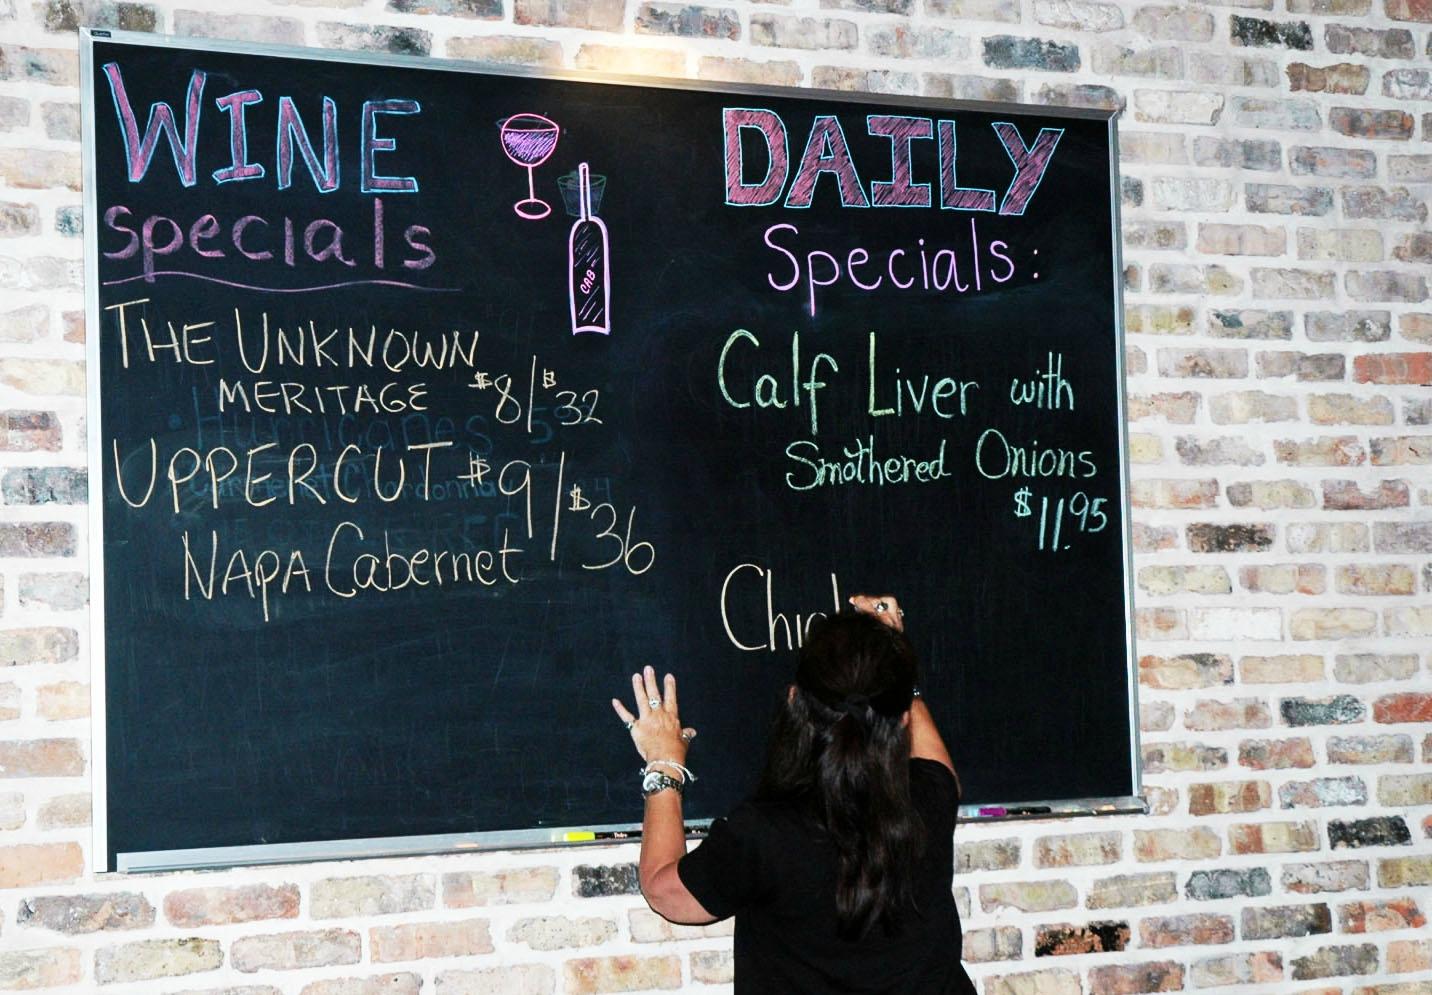 WINE
specials
THE UNKNOWN
MERITAGE $8/$32
UPPERCUT $9/$36
NAPA Cabernet
CAB
DAILY
Specials:
Calf Liver with
Smothered Onions
$11.95